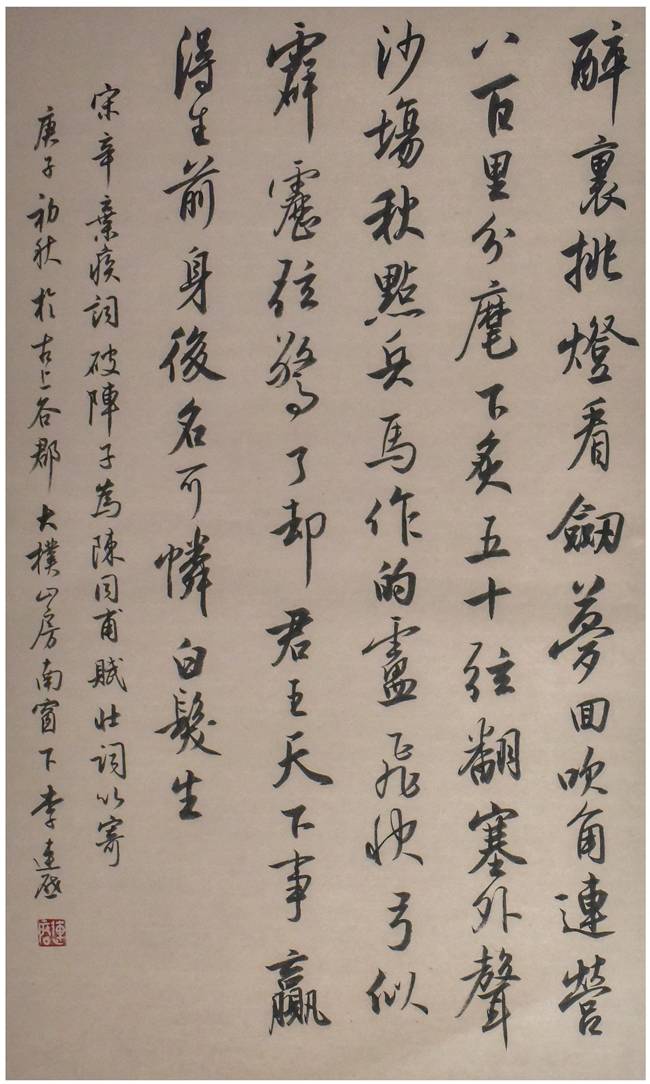 醉裏挑燈看劔夢回吹角連營
八百里分麾下炙五十弦翻塞外聲
沙塲秋點兵馬作的盧飛快弓似
霹靂弦驚了却君王天下事贏
得生前身後名可憐白髮生
宋辛棄疾詞破陣子為陳同甫賦壯詞以寄
庚子初秋於古上谷郡大樸山房南窗下李連